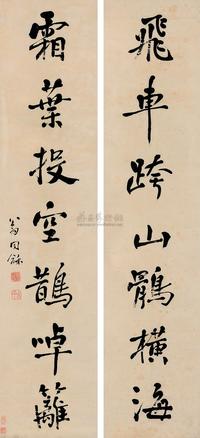 飛車跨山鶻橫海
霜葉投空鵲啅籬
翁同龢